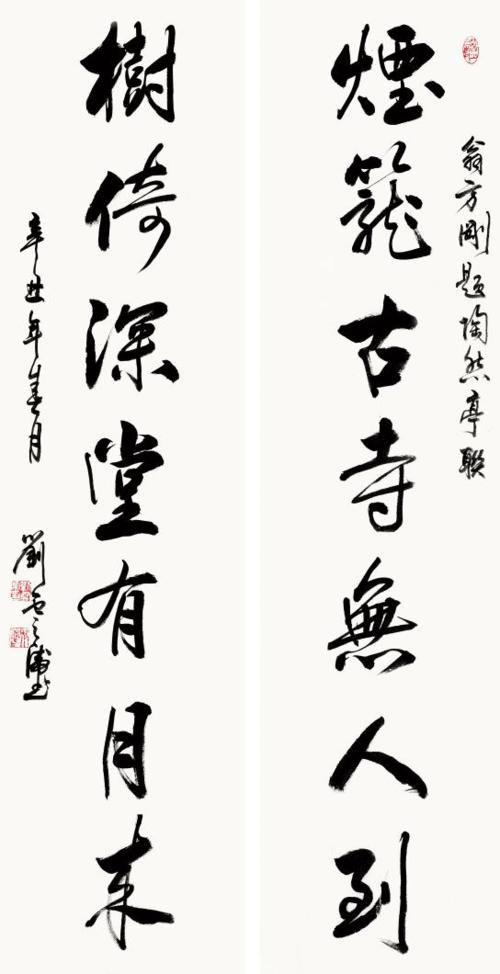 翁方剛題陶然亭聯
煙籠古寺無人到
樹倚深堂有月来
辛丑年春月 劉